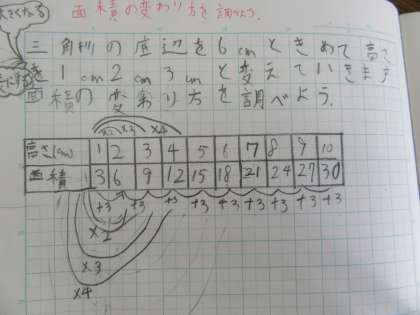 面積の変わり方を調べよう.
大きくなる
三角形の底辺を6cmときめて高さ
を1cm2cm3cmと変えていきます
面積の変わり方を調べよう。
×2 ×3 ×4
高さ(cm) 1 2 3 4 5 6 7 8 9 10
面積 3 6 9 12 15 18 21 24 27 30
+3 +3 +3 +3 +3 +3 +3 +3 +3
×2
×3
×4